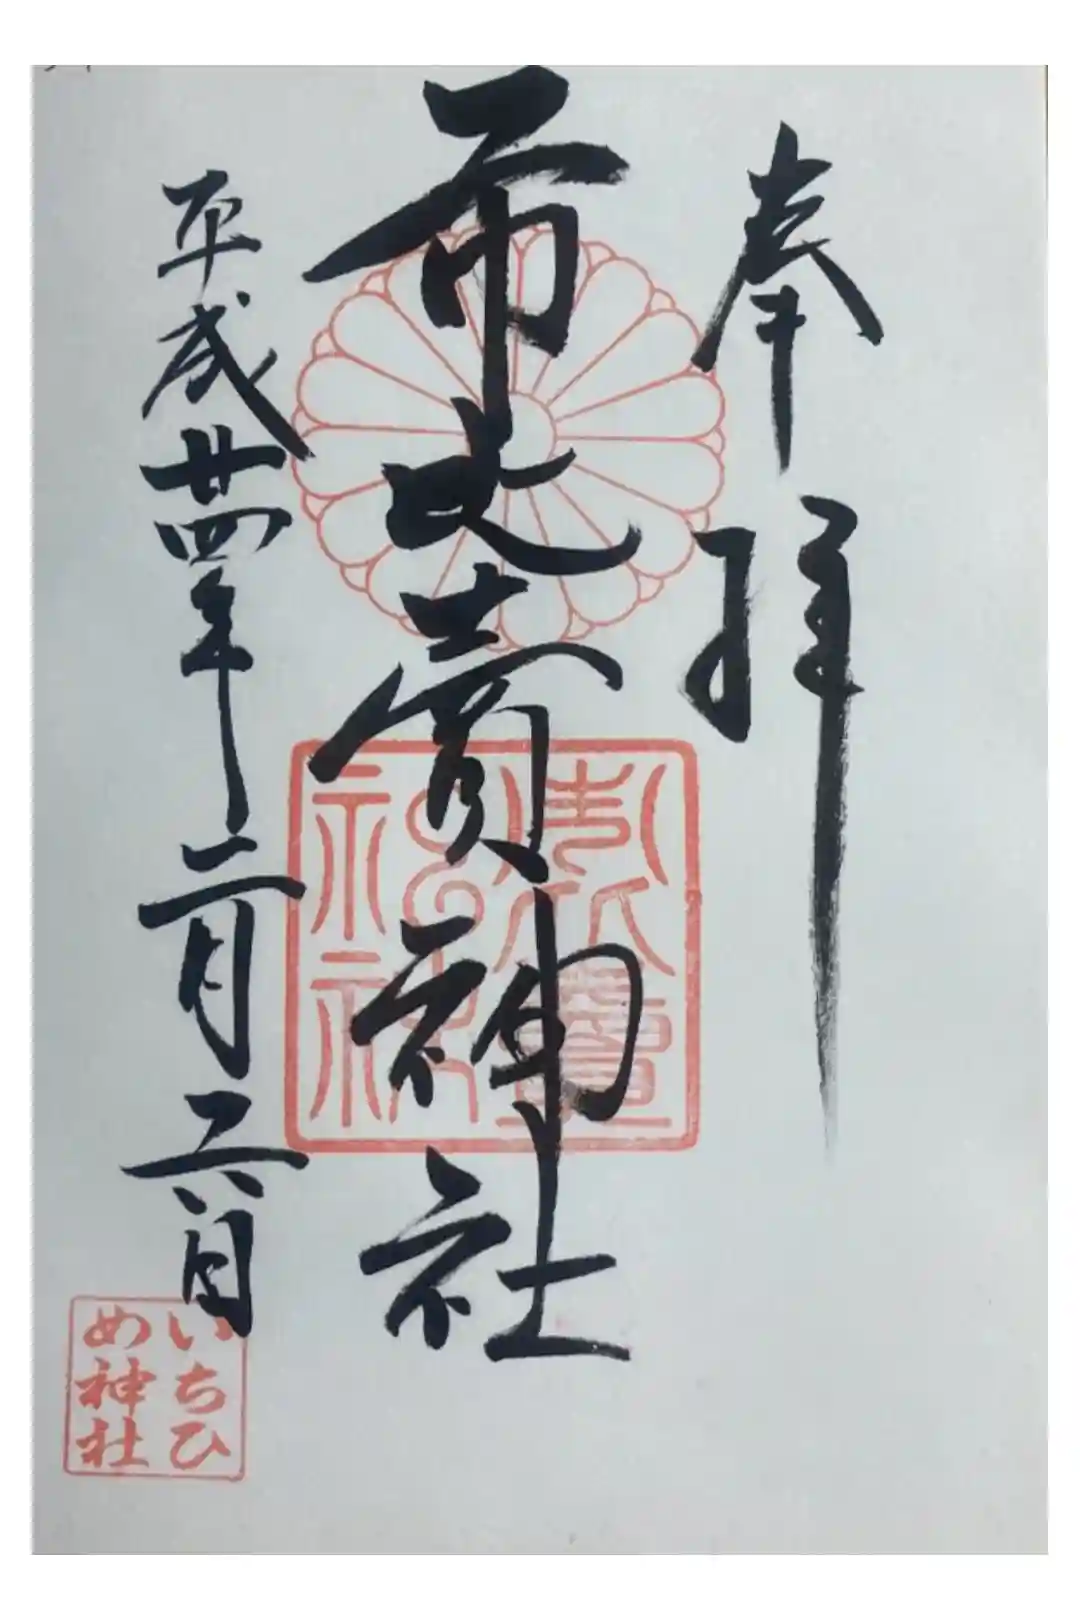 奉拝
市比賣神社
平成廿四年二月六日
いちひ
め神社